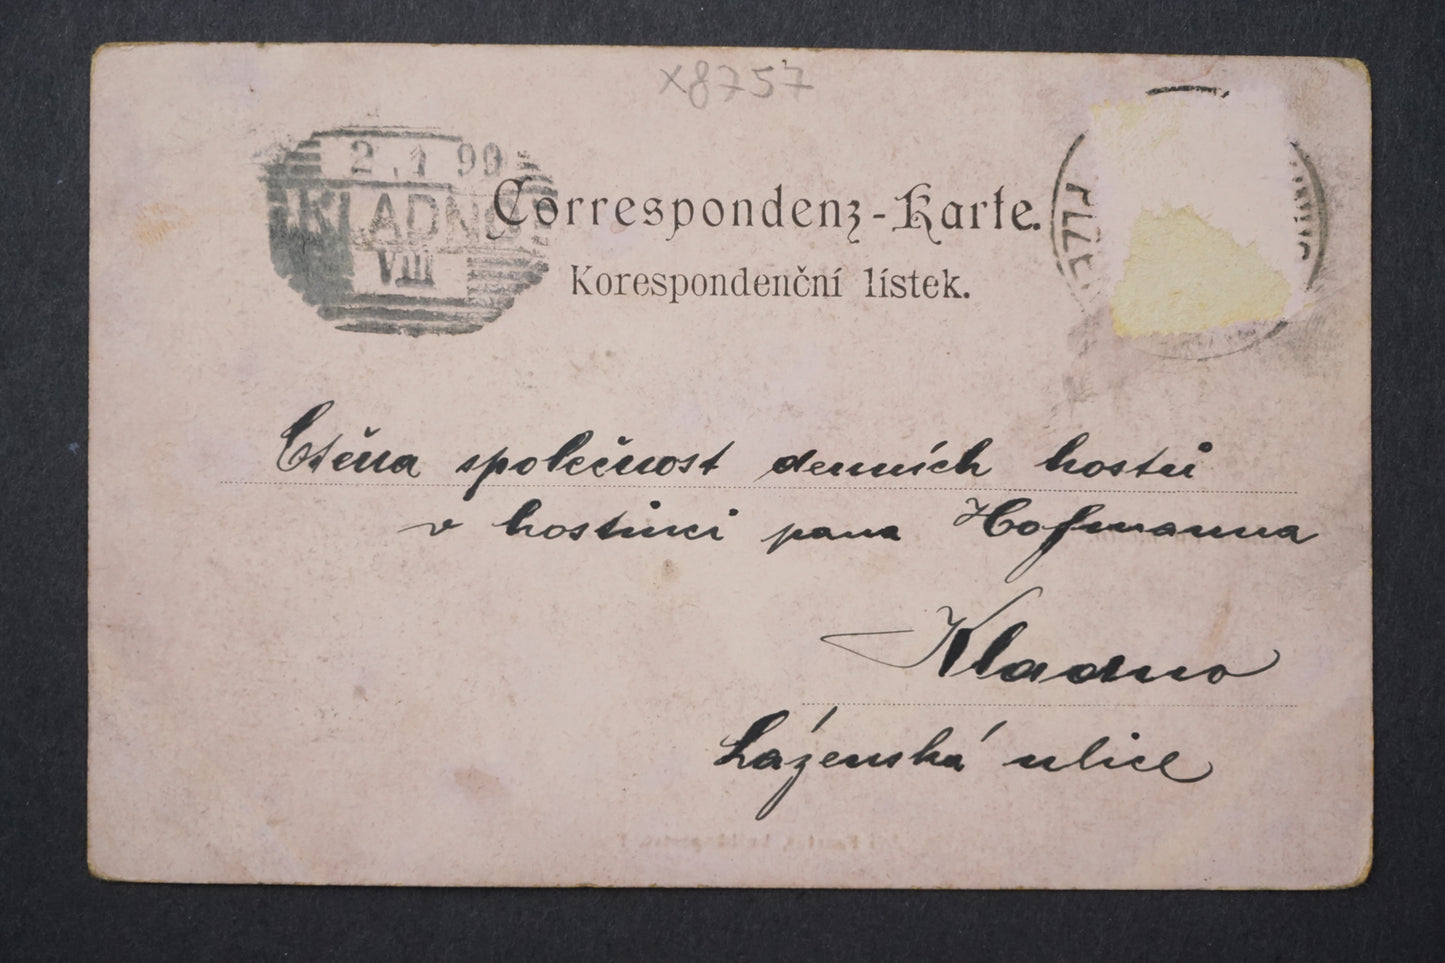 x8757
2.1 99
KLADNO
VIII
Correspondenz-Karte.
Korespondenční lístek.
Ctěna společnost denních hostů
v hostinci pana Hofmanna
Kladno
Lázenská ulice